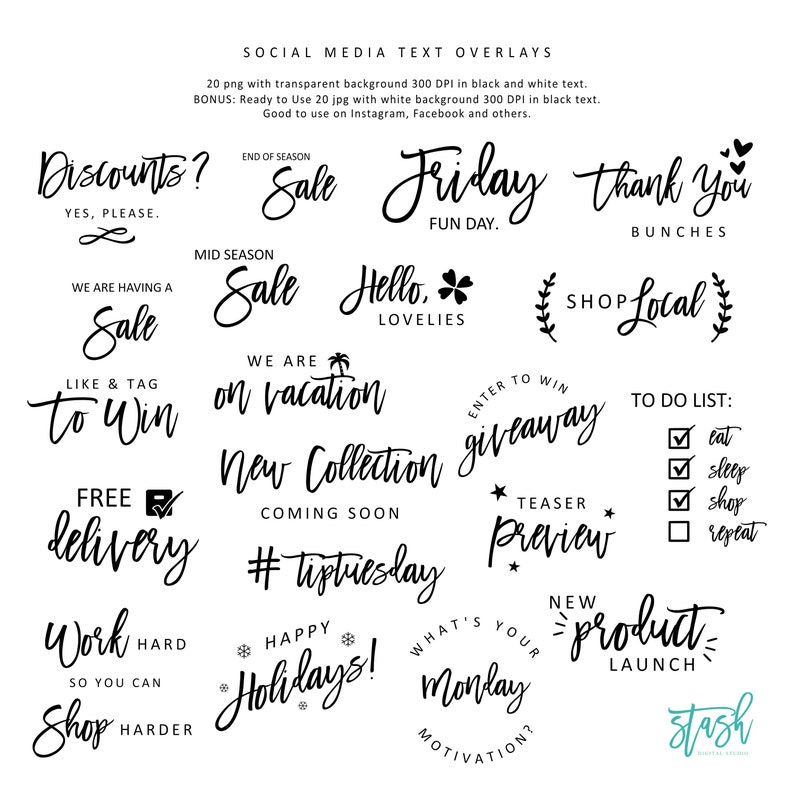 SOCIAL MEDIA TEXT OVERLAYS
20 png with transparent background 300 DPI in black and white text.
BONUS: Ready to Use 20 jpg with white background 300 DPI in black text.
Good to use on Instagram, Facebook and others.
Discounts?
YES, PLEASE.
END OF SEASON
Sale
Friday
FUN DAY.
Thank You
BUNCHES
WE ARE HAVING A
Sale
MID SEASON
Sale
Hello,
LOVELIES
SHOP Local
LIKE & TAG
to Win
WE ARE
on vacation
ENTER TO WIN
giveaway
TO DO LIST:
eat
sleep
shop
repeat
New Collection
COMING SOON
FREE
delivery
TEASER
preview
#tiptuesday
Work HARD
SO YOU CAN
Shop HARDER
HAPPY
Holidays!
WHAT'S YOUR
Monday
MOTIVATION?
NEW
product
LAUNCH
stash
DIGITAL STUDIO